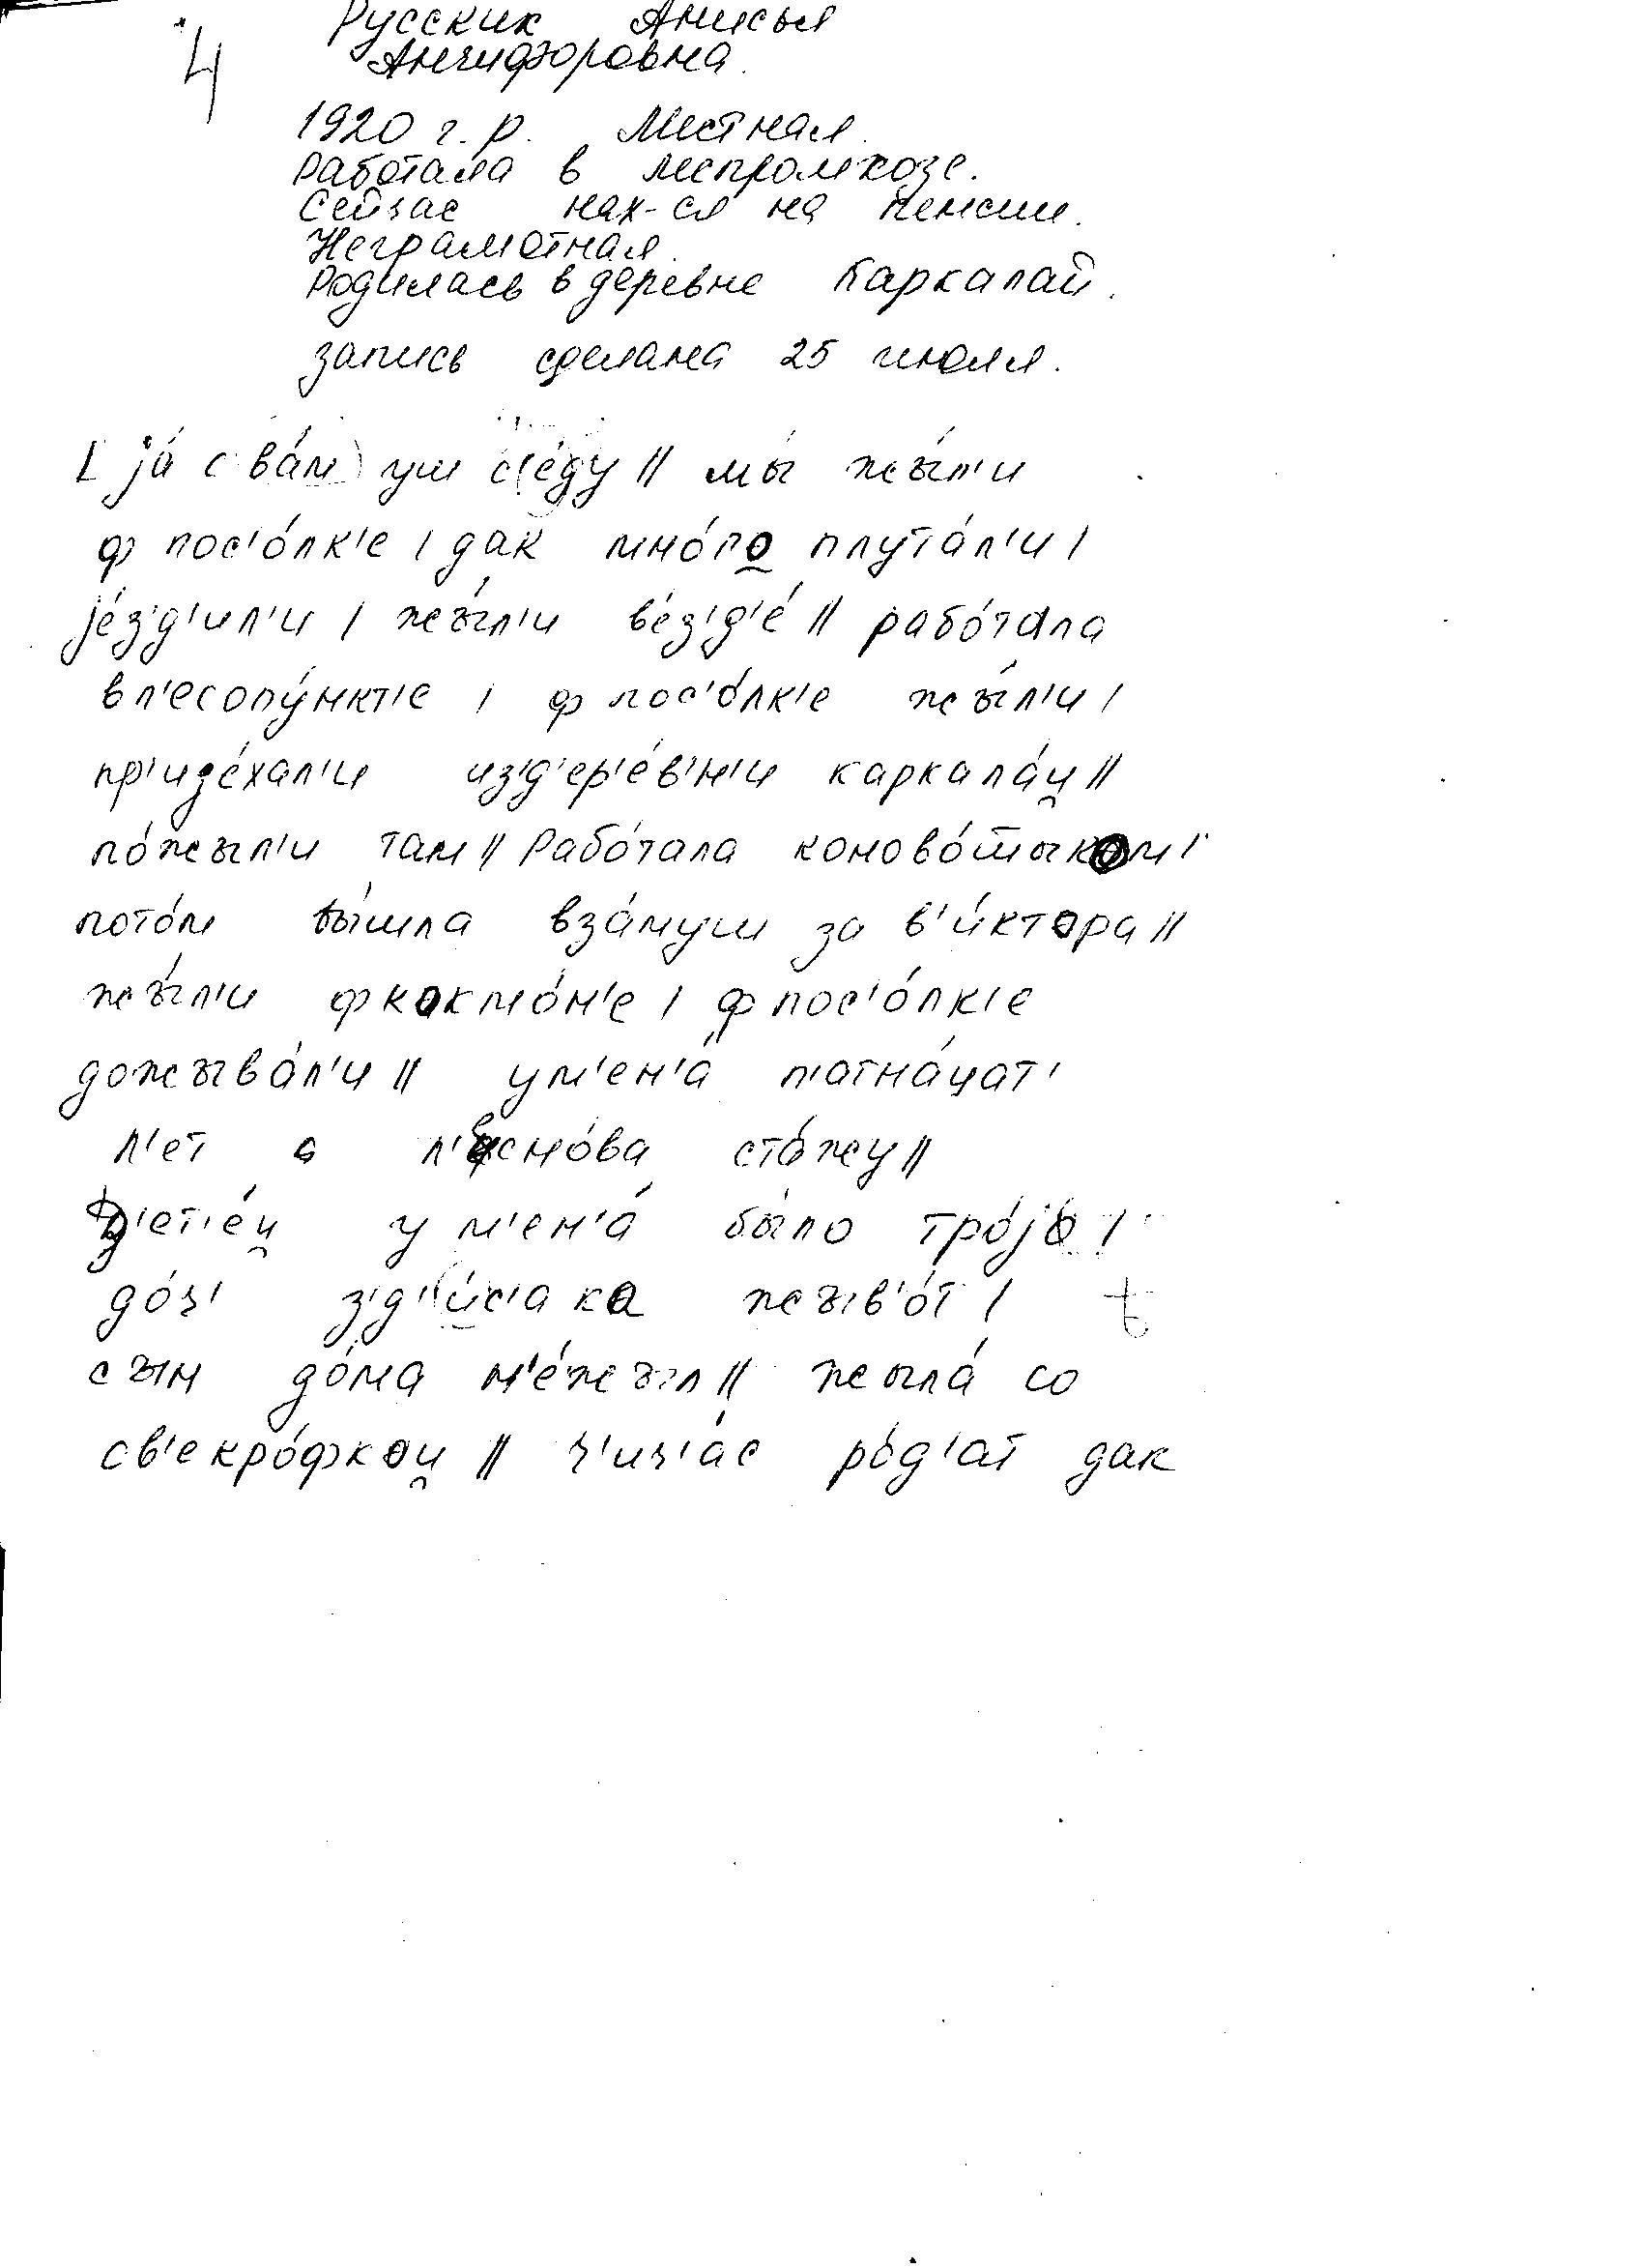 4
Русских Анисья
Анчифоровна.
1920 г. р. Местная.
Работала в леспромхозе.
Сейчас нах-ся на пенсии.
Неграмотная.
Родилась в деревне Каркалай.
запись сделана 25 июля.
[ jа́ с ва́м уш с'е́ду || мы́ жы́л'и
ф пос'о́лк'е | дак мно́го плута́л'и |
jе́з'д'ил'и | жы́л'и ве́з'д'е́ || рабо́тала
в л'есопу́нкт'е | ф пос'о́лк'е жы́л'и |
пр'иjе́хал'и из'д'ер'е́в'н'и каркала́и̯ ||
по́жыл'и там || Рабо́тала коново́тыком |
пото́м вы́шла вза́муш за в'и́ктора ||
жы́л'и ф кокмо́н'е | ф пос'о́лк'е
дожыва́л'и || у м'ен'а́ п'атна́цат'
л'ет а л'исно́ва ста́жу ||
д'ет'е́и̯ у м'ен'а́ бы́ло тро́jо |
до́ч' з'д'и́с'ака жыв'о́т |
сын до́ма н'е́жыл || жыла́ со
св'екро́фкои̯ || ч'ич'а́с ро́д'ат дак